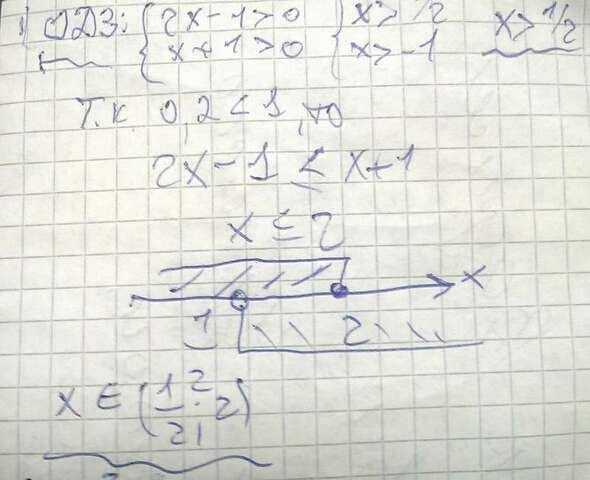 ОДЗ: { 2x - 1 > 0 { x > 1/2 x > 1/2
{ x + 1 > 0 { x > -1
Т.к 0,2 < 1, то
2x - 1 ≤ x + 1
x ≤ 2
x
1 2
x ∈ (1/2; 2)